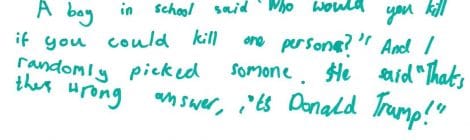 A boy in school said "Who would you kill
if you could kill one persons?" And I
randomly picked somone. He said "That's
the wrong answer, it's Donald Trump!"